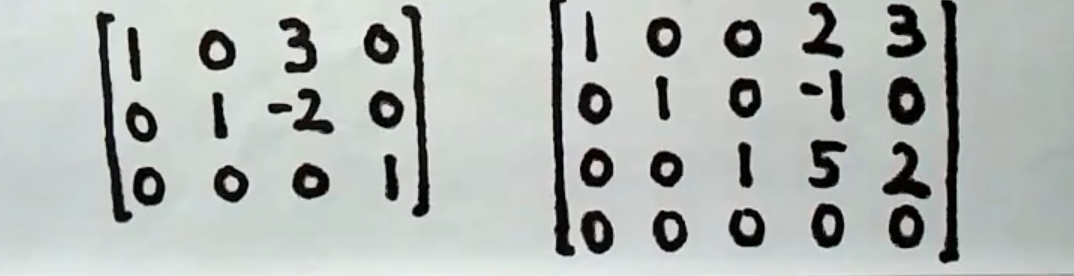 1 0 3 0
0 1 -2 0
0 0 0 1
1 0 0 2 3
0 1 0 -1 0
0 0 1 5 2
0 0 0 0 0